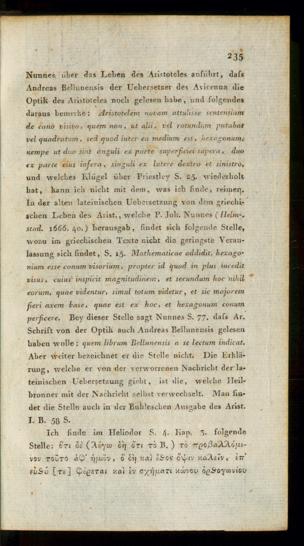 235
Nunnes über das Leben des Aristoteles anführt, daſs
Andreas Bellunensis der Uebersetzer des Avicenna die
Optik des Aristoteles noch gelesen habe, und folgendes
daraus bemerke: Aristotelem novam attulisse sententiam
de cono visivo, quem non, ut alii, vel rotundum putabat
vel quadratum, sed quod inter ea medium est, hexagonum,
nempe ut duo sint anguli ex parte superficiei supera, duo
ex parte eius infera, singuli ex latere dextro et sinistro,
und welches Klügel über Priestley S. 25. wiederholt
hat, kann ich nicht mit dem, was ich finde, reimen.
In der alten lateinischen Uebersetzung von dem griechi-
schen Leben des Arist., welche P. Joh. Nunnes (Helm-
stad. 1666. 40.) herausgab, findet sich folgende Stelle,
wozu im griechischen Texte nicht die geringste Veran-
lassung sich findet, S. 15. Mathematicae addidit, hexago-
nium esse conum visorium, propter id quod in plus incedit
visus, cuius inspicit magnitudinem, et secundum hoc nihil
eorum, quae videntur, simul totum videtur, et sic maiorem
fieri axem base, quae est ex hoc, et hexagonum conum
perficere. Bey dieser Stelle sagt Nunnes S. 77. daſs Ar.
Schrift von der Optik auch Andreas Bellunensis gelesen
haben wolle: quem librum Bellunensis a se lectum indicat.
Aber weiter bezeichnet er die Stelle nicht. Die Erklä-
rung, welche er von der verworrenen Nachricht der la-
teinischen Uebersetzung giebt, ist die, welche Heil-
bronner mit der Nachricht selbst verwechselt. Man fin-
det die Stelle auch in der Buhleschen Ausgabe des Arist.
I. B. 58 S.
Ich finde im Heliodor S. 4. Kap. 3. folgende
Stelle: ὅτι δὲ (λέγω δὴ ὅτι τὸ Β.) τὸ προβαλλόμε-
νον τοῦτο ἀφ' ἡμῶν, ὃ δὴ καὶ ἔθος ὄψιν καλεῖν, ἐπ'
εὐθὺ [τε] φέρεται καὶ ἐν σχήματι κώνου ὀρθογωνίου